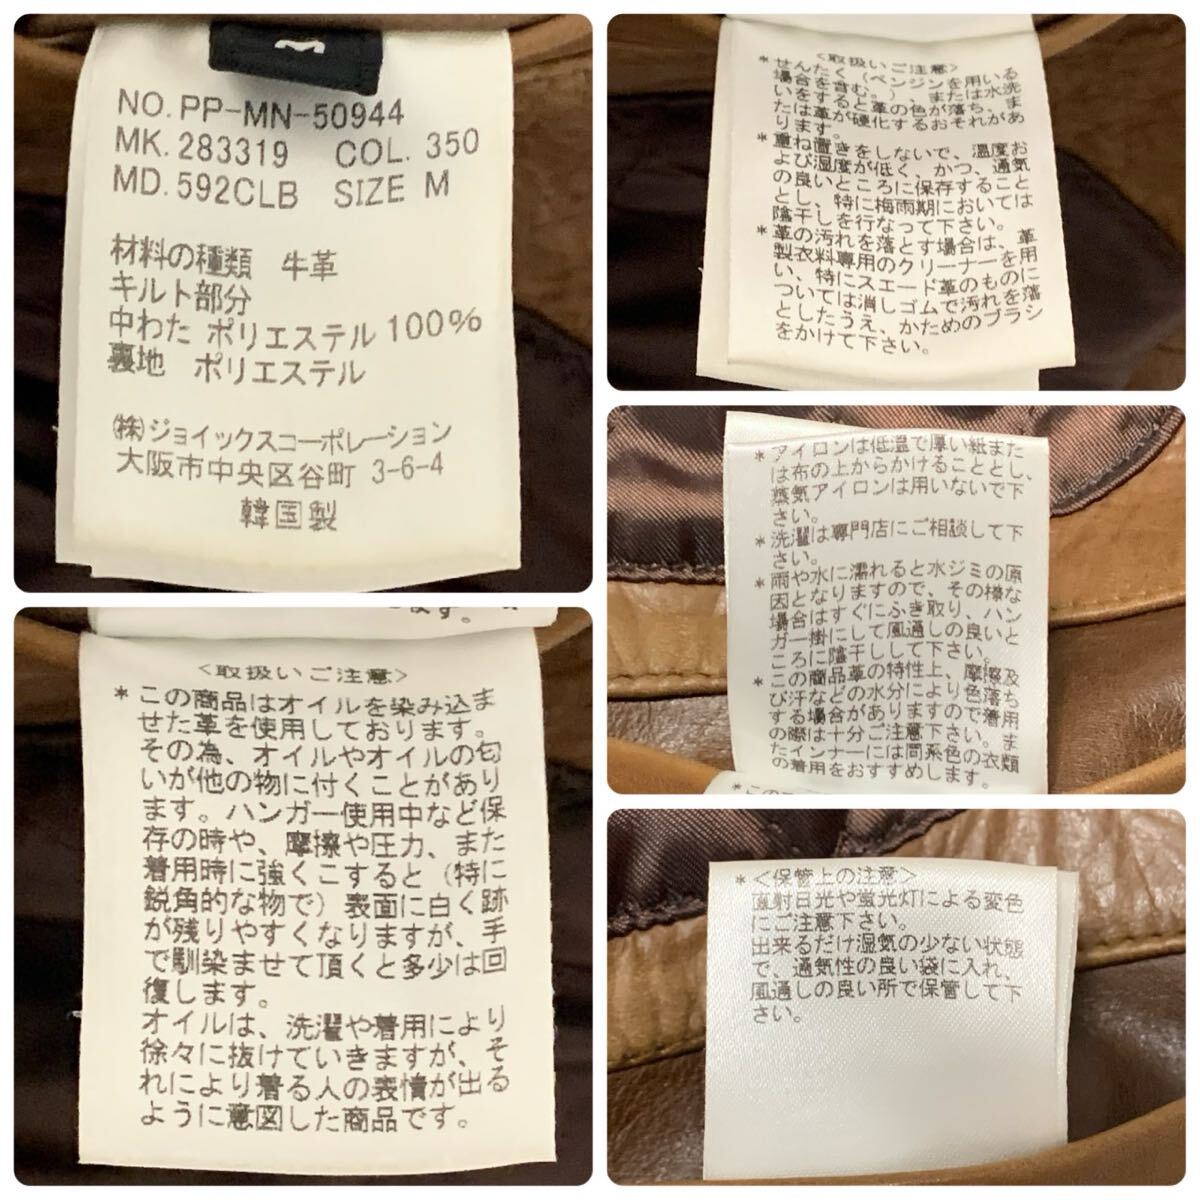 M
NO. PP-MN-50944
MK. 283319 COL. 350
MD. 592CLB SIZE M
材料の種類 牛革
キルト部分
中わた ポリエステル 100%
裏地 ポリエステル
㈱ジョイックスコーポレーション
大阪市中央区谷町 3-6-4
韓国製
<取扱いご注意>
*せんたく（ベンジンを用いる
場合を含む。）、または水洗
いをすると革の色が落ち、ま
たは革が硬化するおそれがあ
ります。
*重ね置きをしないで、温度お
よび湿度が低く、かつ、通気
の良いところに保存すること
とし、特に梅雨期においては
陰干しを行なって下さい。
*革の汚れを落とす場合は、革
製衣料専用のクリーナーを用
い、特にスエード革のものに
ついては消しゴムで汚れを落
としたうえ、かためのブラシ
をかけて下さい。
*アイロンは低温で厚い紙また
は布の上からかけることとし、
蒸気アイロンは用いないで下
さい。
*洗濯は専門店にご相談して下
さい。
*雨や水に濡れると水ジミの原
因となりますので、その様な
場合はすぐにふき取り、ハン
ガー掛にして風通しの良いと
ころに陰干しして下さい。
*この商品革の特性上、摩擦及
び汗などの水分により色落ち
する場合がありますので着用
の際は十分ご注意下さい。ま
たインナーには同系色の衣類
の着用をおすすめします。
ます。
<取扱いご注意>
*この商品はオイルを染み込ま
せた革を使用しております。
その為、オイルやオイルの匂
いが他の物に付くことがあり
ます。ハンガー使用中など保
存の時や、摩擦や圧力、また
着用時に強くこすると（特に
鋭角的な物で）表面に白く跡
が残りやすくなりますが、手
で馴染ませて頂くと多少は回
復します。
オイルは、洗濯や着用により
徐々に抜けていきますが、そ
れにより着る人の表情が出る
ように意図した商品です。
*<保管上の注意>
直射日光や蛍光灯による変色
にご注意下さい。
出来るだけ湿気の少ない状態
で、通気性の良い袋に入れ、
風通しの良い所で保管して下
さい。